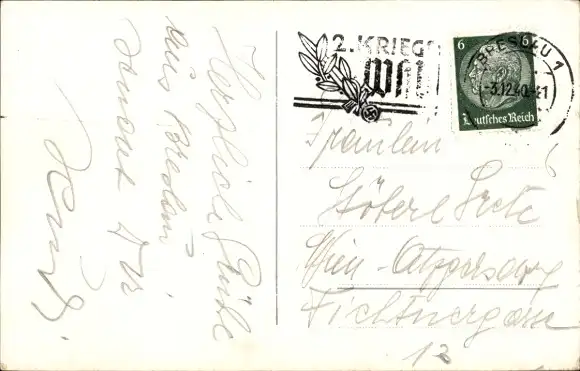 Herzliche Grüße
aus Breslau
sendet Dir
2. KRIEGS
WHW
6 6
BRESLAU 1
-3.12.40.-
Deutsches Reich
Fräulein
Stöberl Grete
Wien-Atzgersdorf
Fichtnergasse
12